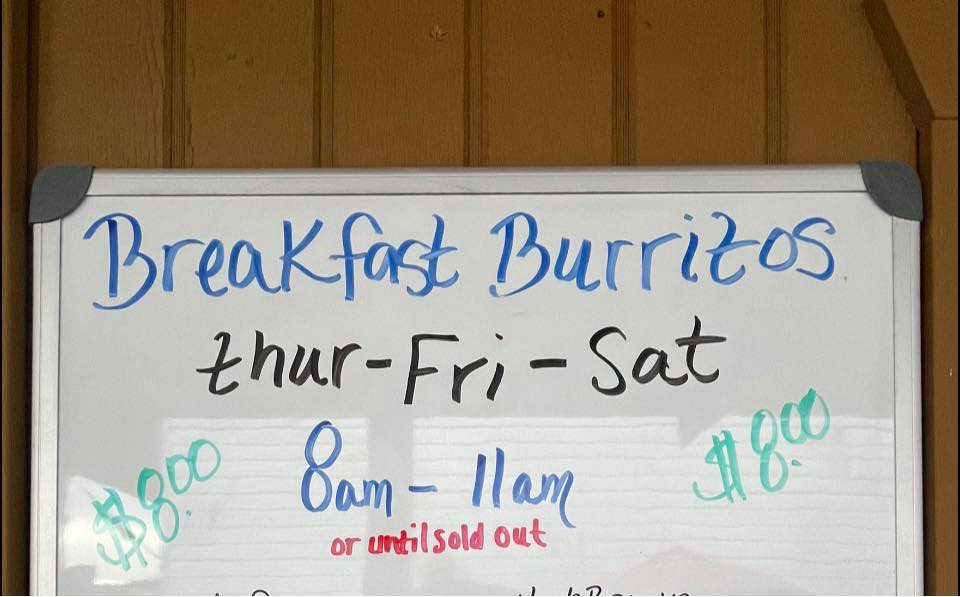 Breakfast Burritos
thur-Fri-Sat
$8.00 8am - 11am $8.00
or until sold out